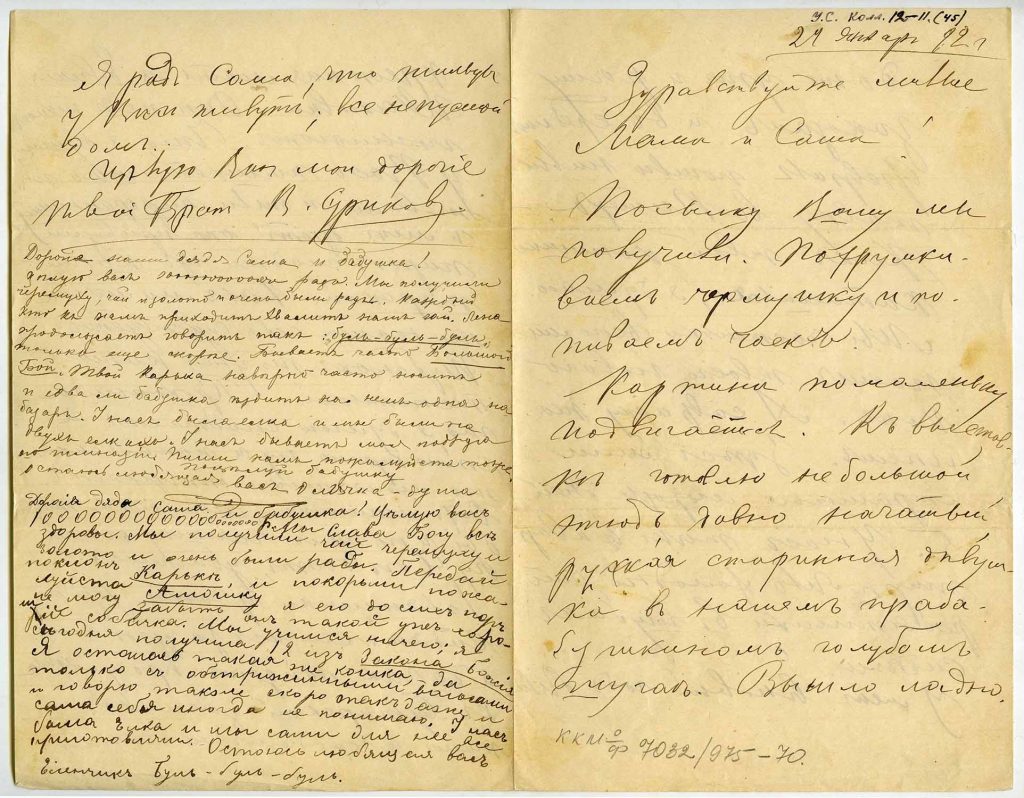 Я радъ Саша, что жильцы
у Васъ живутъ, все не пустой
домъ.
Цѣлую Васъ мои дорогіе
твой Братъ В. Суриковъ.
Дорогіе наши дядя Саша и бабушка!
Цѣлую васъ 10000000000000 разъ. Мы получили
черемуху, чай и золото и очень были рады. Каждый
кто къ намъ приходитъ хвалитъ нашъ чай. Лена
продолжаетъ говорить такъ: буль-буль-буль,
только еще скорѣе. Бываетъ часто Большой
Бой. Твой Карька навѣрно часто
и едва ли бабушка ѣздитъ на немъ одна на
базаръ. У насъ была елка и мы были на
двухъ елкахъ. У насъ бываетъ моя подруга
по гимназіи. Пиши намъ пожалуйста тоже.
поцѣлуй бабушку
остаюсь любящая васъ Олечка-душа
Дорогіе дядя Саша и бабушка! Цѣлую васъ
1000000000000000000 р. Мы слава Богу всѣ
здоровы. Мы получили чай черемуху и
золото и очень были рады. Передай
поклонъ Карькѣ, и покорми пожа-
луйста Амошку я его до сихъ поръ
не могу забыть онъ такой ужъ хоро-
шій собачка. Мы учимся ничего: я
сегодня получила 12 изъ Закона Божія
Я осталась такая же кошка, да
только съ обстриженными волосами
и говорю также скоро такъ даже и
сама себя иногда не понимаю. У насъ
была ёлка и мы сами для нее все
приготовляли. Остаюсь любящая васъ
Еленчикъ Буль-буль-буль.
У.С. Колл. 12-11.(45)
24 Январь 92 г
Здравствуйте милые
Мама и Саша!
Посылку Вашу мы
получили. Похрумки-
ваемъ черемушку и по-
пиваемъ чаекъ
Картина помаленьку
подвигается. Къ выстав-
кѣ готовлю небольшой
этюдъ давно начатый
русская старинная дѣвуш-
ка въ нашемъ праба-
бушкиномъ голубомъ
шугаѣ. Вышло ладно.
ККМ о/ф 7032/975-70.